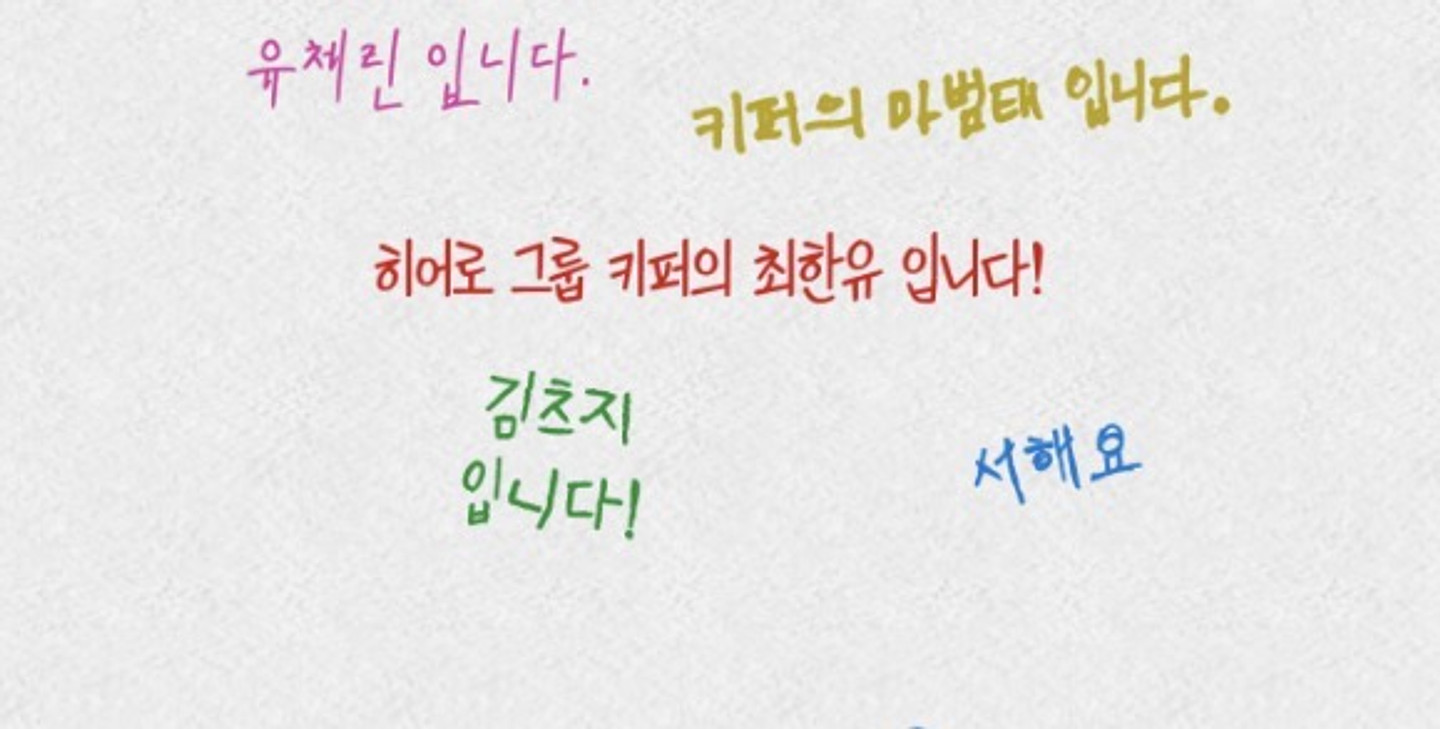 유채린 입니다.
키퍼의 마범태 입니다.
히어로 그룹 키퍼의 최한유 입니다!
김초지
입니다!
서해요